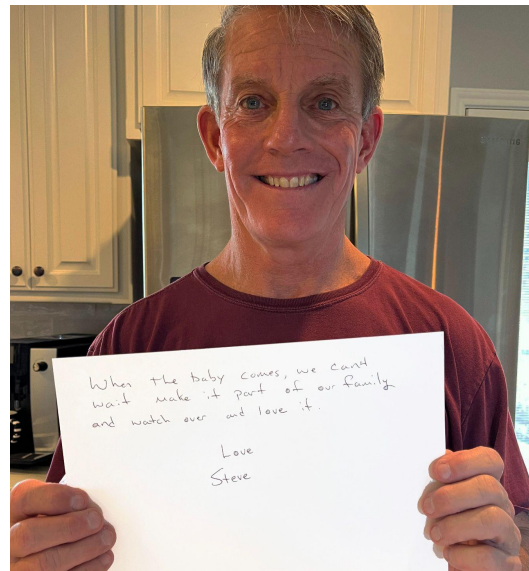 When the baby comes, we can't
wait make it part of our family
and watch over and love it.
Love
Steve